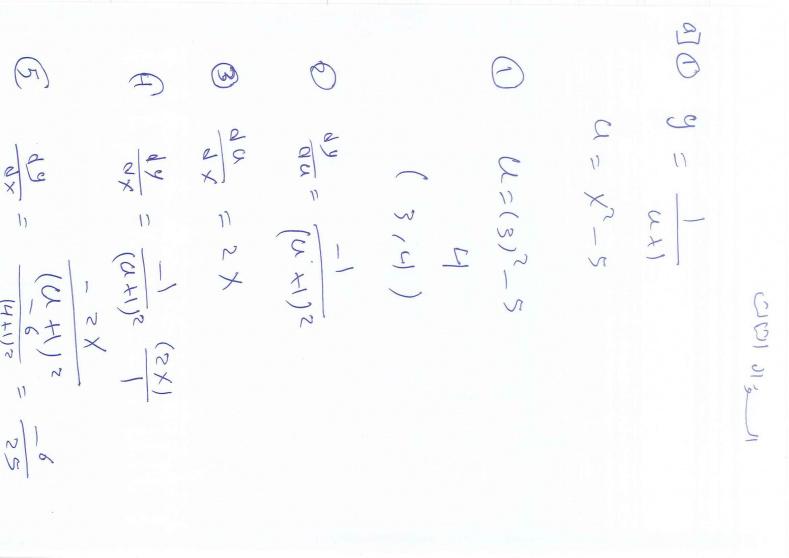 السؤال الثالث
a] ① y = 1/(u+1)
u = x² - 5
① u = (3)² - 5
4
(3, 4)
② dy/du = -1/(u+1)²
③ du/dx = 2x
4 dy/dx = -1/(u+1)² (2x)/1
-2x/(u+1)²
⑤ dy/dx = -6/(4+1)² = -6/25